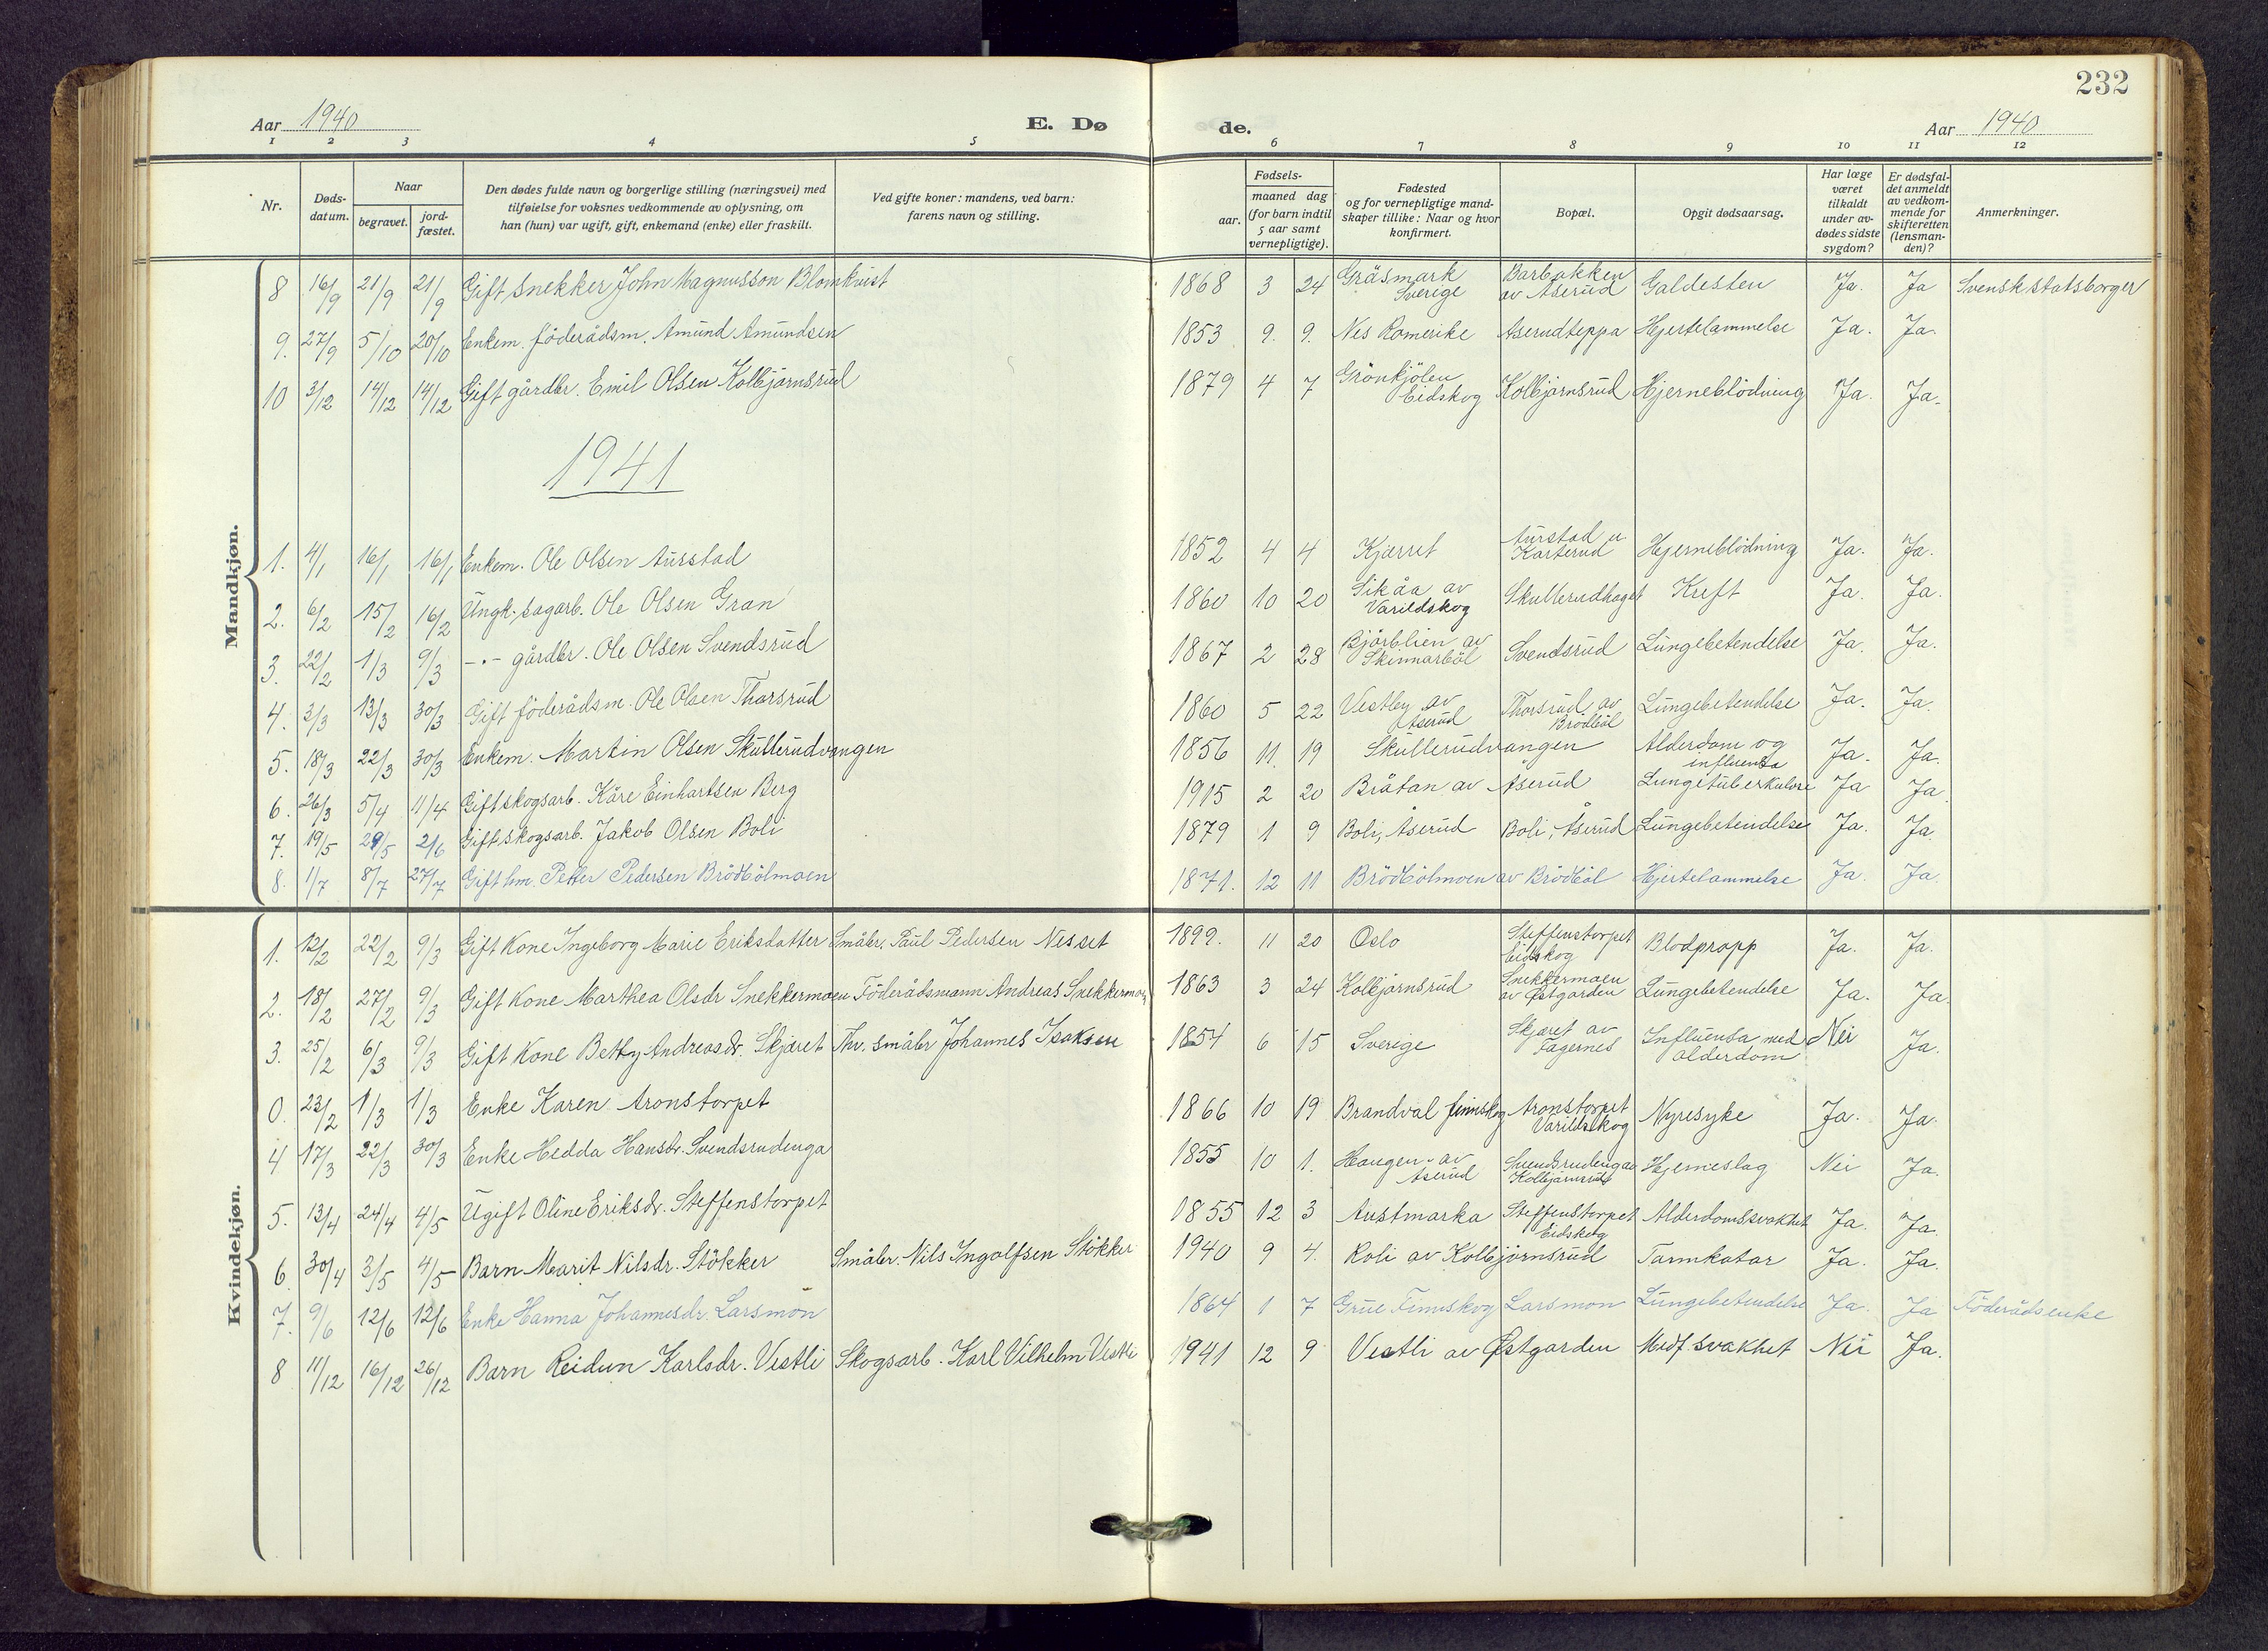 232
Aar 1940 E. Døde. Aar 1940
1 2 3 4 5 6 7 8 9 10 11 12
Nr. Dødsdatum. Naar begravet. jordfæstet. Den dødes fulde navn og borgerlige stilling (næringsvei) med tilføielse for voksnes vedkommende av oplysning, om han (hun) var ugift, gift, enkemand (enke) eller fraskilt. Ved gifte koner: mandens, ved barn: farens navn og stilling. Fødsels- aar. maaned dag (for barn indtil 5 aar samt vernepligtige). Fødested og for vernepligtige mandskaper tillike: Naar og hvor konfirmert. Bopæl. Opgit dødsaarsag. Har læge været tilkaldt under avdødes sidste sygdom? Er dødsfaldet anmeldt av vedkommende for skifteretten (lensmanden)? Anmerkninger.
Mandkjøn.
8 16/9 21/9 21/9 Gift snekker John Magnusson Blomkvist 1868 3 24 Gräsmark Sverige Barbakken av Åserud Galdesten Ja. Ja Svensk statsborger
9. 27/9 5/10 20/10 Enkem. föderådsm. Amund Amundsen 1853 9. 9. Nes Romerike Åserudteppa Hjertelammelse Ja. Ja.
10 3/12 14/12 14/12 Gift gårdbr. Emil Olsen Kolbjörnsrud 1879 4 7 Grönkjölen Eidskog Kolbjörnsrud Hjerneblödning Ja. Ja.
1941
1. 4/1 16/1 16/1 Enkem. Ole Olsen Aurstad 1852 4 4 Kjærret Aurstad u Karterud Hjerneblödning Ja. Ja.
2. 6/2 15/2 16/2 Ungk. sagarb. Ole Olsen Gran 1860 10 20 Sikåa av Varildskog Skullerudhaget Kreft Ja. Ja.
3. 22/2 1/3 9/3 -"- gårdbr. Ole Olsen Svendsrud 1867 2 28 Bjørblien av Skinnarböl Svendsrud Lungebetendelse Ja. Ja.
4. 3/3 13/3 30/3 Gift föderådsm. Ole Olsen Thorsrud 1860 5 22 Vestby av Åserud Thorsrud av Brödböl Lungebetendelse Ja. Ja.
5. 18/3 22/3 30/3 Enkem. Martin Olsen Skullerudvangen 1856 11. 19 Skullerudvangen Alderdom og influensa Ja. Ja.
6. 26/3 5/4 11/4 Gift skogsarb. Kåre Einhartsen Berg 1915 2 20 Bråtan av Åserud Lungetuberkulose Ja Ja.
7. 19/5 29/5 2/6 Gift skogsarb. Jakob Olsen Boli 1879 1 9 Boli, Åserud Boli, Åserud Lungebetendelse Ja. Ja
8. 1/7 8/7 27/7 Gift hm. Petter Pedersen Brödbölmoen 1871. 12 11 Brödbölmoen av Brödböl Hjertelammelse Ja. Ja.
Kvindekjøn.
1. 12/2 22/2 9/3 Gift Kone Ingeborg Marie Eriksdatter Småbr. Paul Pedersen Nesset 1899. 11 20 Oslo Steffenstorpet Eidskog Blodpropp Ja. Ja.
2. 18/2 27/2 9/3 Gift Kone Marthea Olsdr Snekkermoen Föderådsmann Andreas Snekkermoen 1863 3 24 Kolbjörnsrud Snekkermoen av Østgarden Lungebetendelse Ja. Ja.
3. 25/2 6/3 9/3 Gift Kone Betty Andreasdr. Skjæret Thv. småbr Johannes Isaksen 1854 6 15 Sverige Skjæret av Fagernes Influensa med alderdom Nei Ja.
0. 23/2 1/3 1/3 Enke Karen Aronstorpet 1866 10 19 Brandval finnskog Aronstorpet Varildskog Nyresyke Ja. Ja.
4 17/3 22/3 30/3 Enke Hedda Hansdr. Svendsrudenga 1855 10 1. Haugen av Åserud Svendsrudenga Kolbjörnsrud Hjerneslag Nei Ja.
5. 13/4 24/4 4/5 Ugift Oline Eriksdr. Steffenstorpet 1855 12 3 Austmarka Steffenstorpet Eidskog Alderdomssvakhet Ja. Ja.
6. 30/4 3/5 4/5 Barn Marit Nilsdr. Stökker Småbr. Nils Ingolfsen Stökker 1940 9 4. Roli av Kolbjörnsrud Tarmkatar Ja. Ja.
7. 9/6 12/6 12/6 Enke Hanna Johannesdr. Larsmon 1864 1 7 Grue Finnskog Larsmon Lungebetendelse Ja. Ja Föderådsenke
8 11/12 16/12 26/12 Barn Reidun Karlsdr. Vestli Skogsarb. Karl Vilhelm Vestli 1941 12 9 Vestli av Østgarden Medf. svakhet Nei Ja.